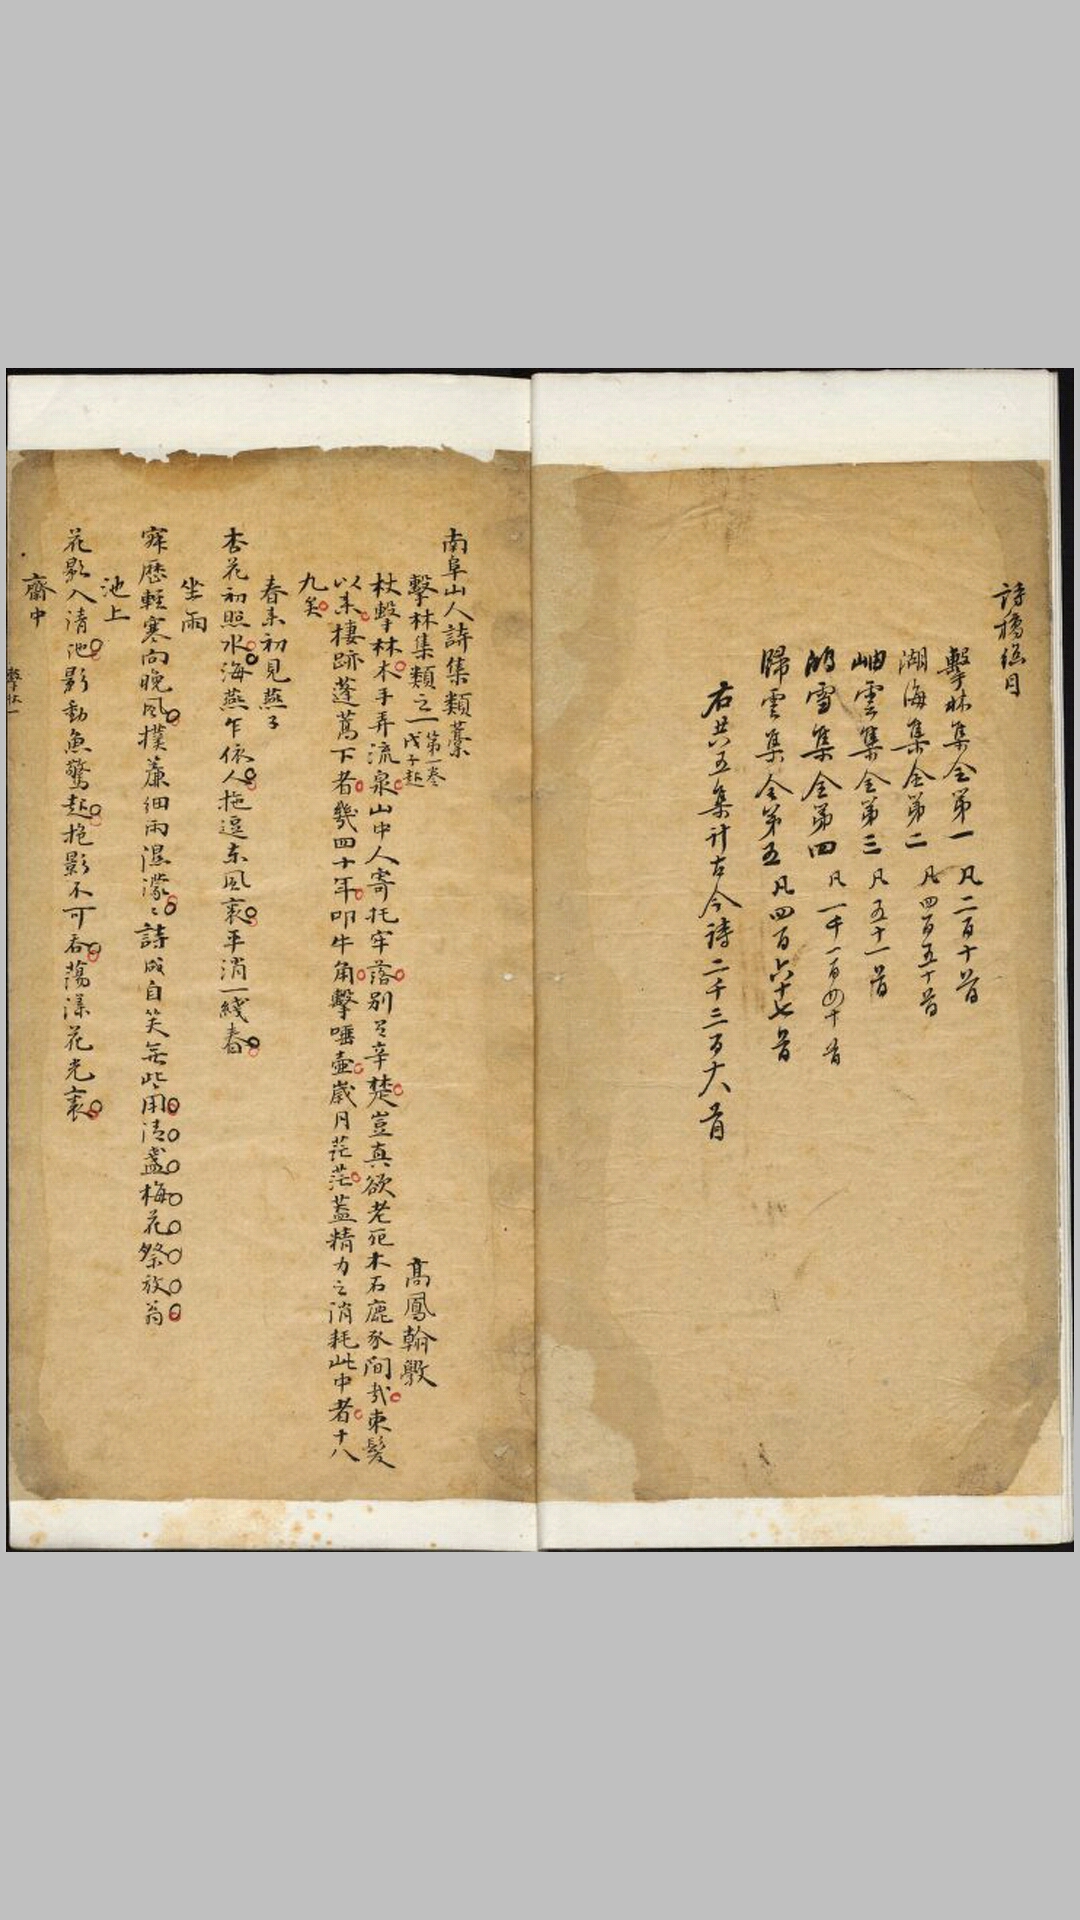 詩橋總目
擊林集全第一 凡二百十首
湖海集全第二 凡四百五十首
岫雲集全第三 凡五十一首
鴻雪集全第四 凡一千一百四十首
歸雲集全第五 凡四百六十七首
右共五集計古今詩二千三百十八首
南阜山人詩集類藁
擊林集類之一 第一卷 戊子起
高鳳翰
杖擊林木手弄流泉山中人寄托牢落別是辛楚豈真欲老死木石鹿豕間哉束髮
以來棲跡蓬蒿下者幾四十年叩牛角擊唾壷歲月茫茫葢精力之消耗此中者十八
九矣
春來初見燕子
杏花初照水海燕乍依人拖逗東風裏平消一綫春
坐雨
寂歷輕寒向晚風撲簾細雨濕濛〻詩成自笑無些用清盞梅花祭放翁
池上
花影入清池影動魚驚起抱影不可吞蕩漾花光裏
齋中
擊林一